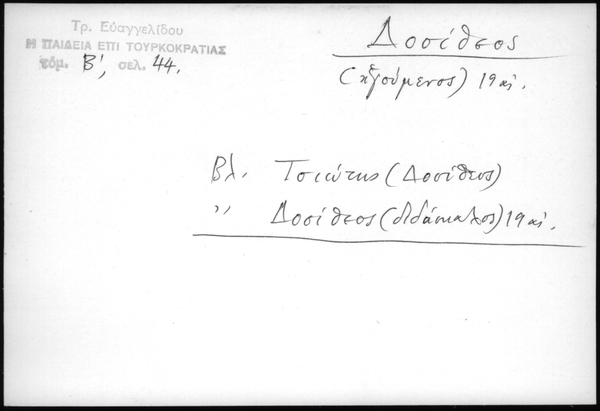 Τρ. Εὐαγγελίδου
Η ΠΑΙΔΕΙΑ ΕΠΙ ΤΟΥΡΚΟΚΡΑΤΙΑΣ
τόμ. Β', σελ. 44.
Δοσίθεος
(ἡγούμενος) 19 αἰ.
Βλ. Τσιώτης (Δοσίθεος)
,, Δοσίθεος (διδάσκαλος) 19 αἰ.